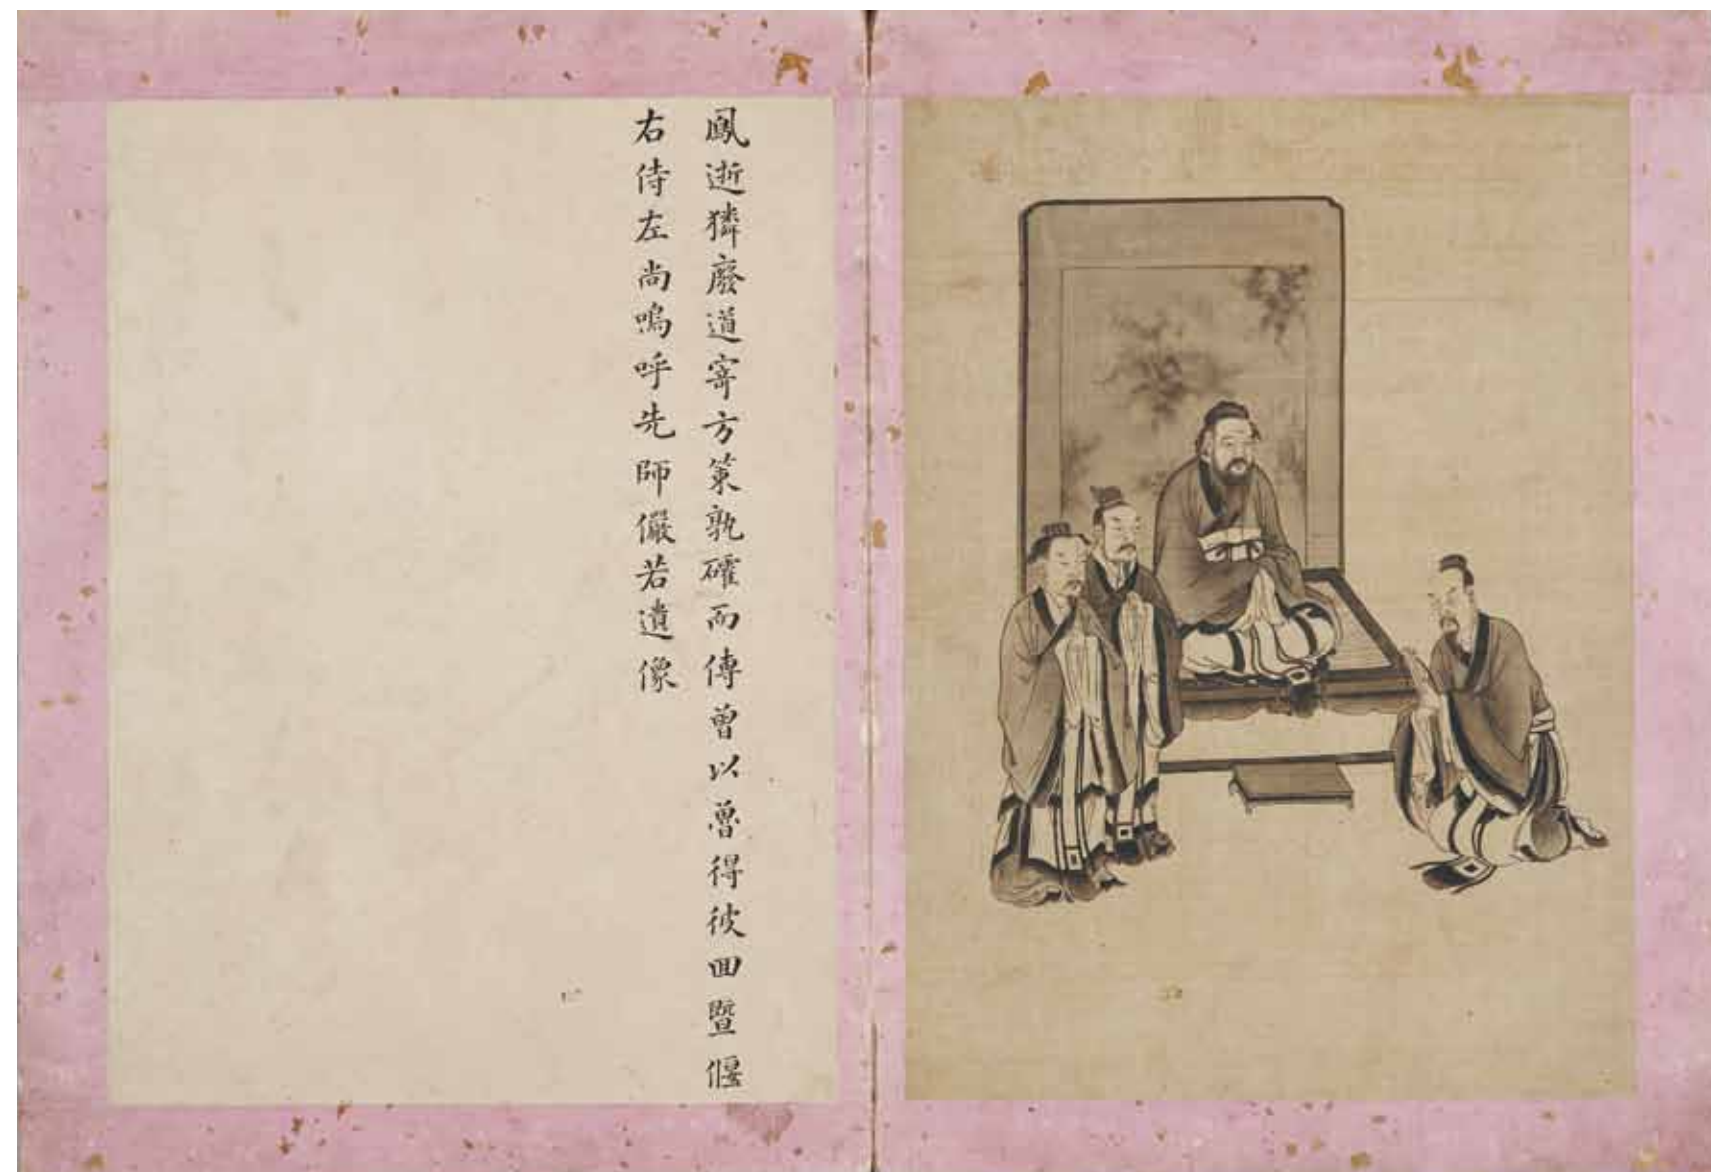 鳳逝獜廢道寄方策孰確而傳曾以魯得彼囬暨偃
右侍左尚嗚呼先師儼若遺像